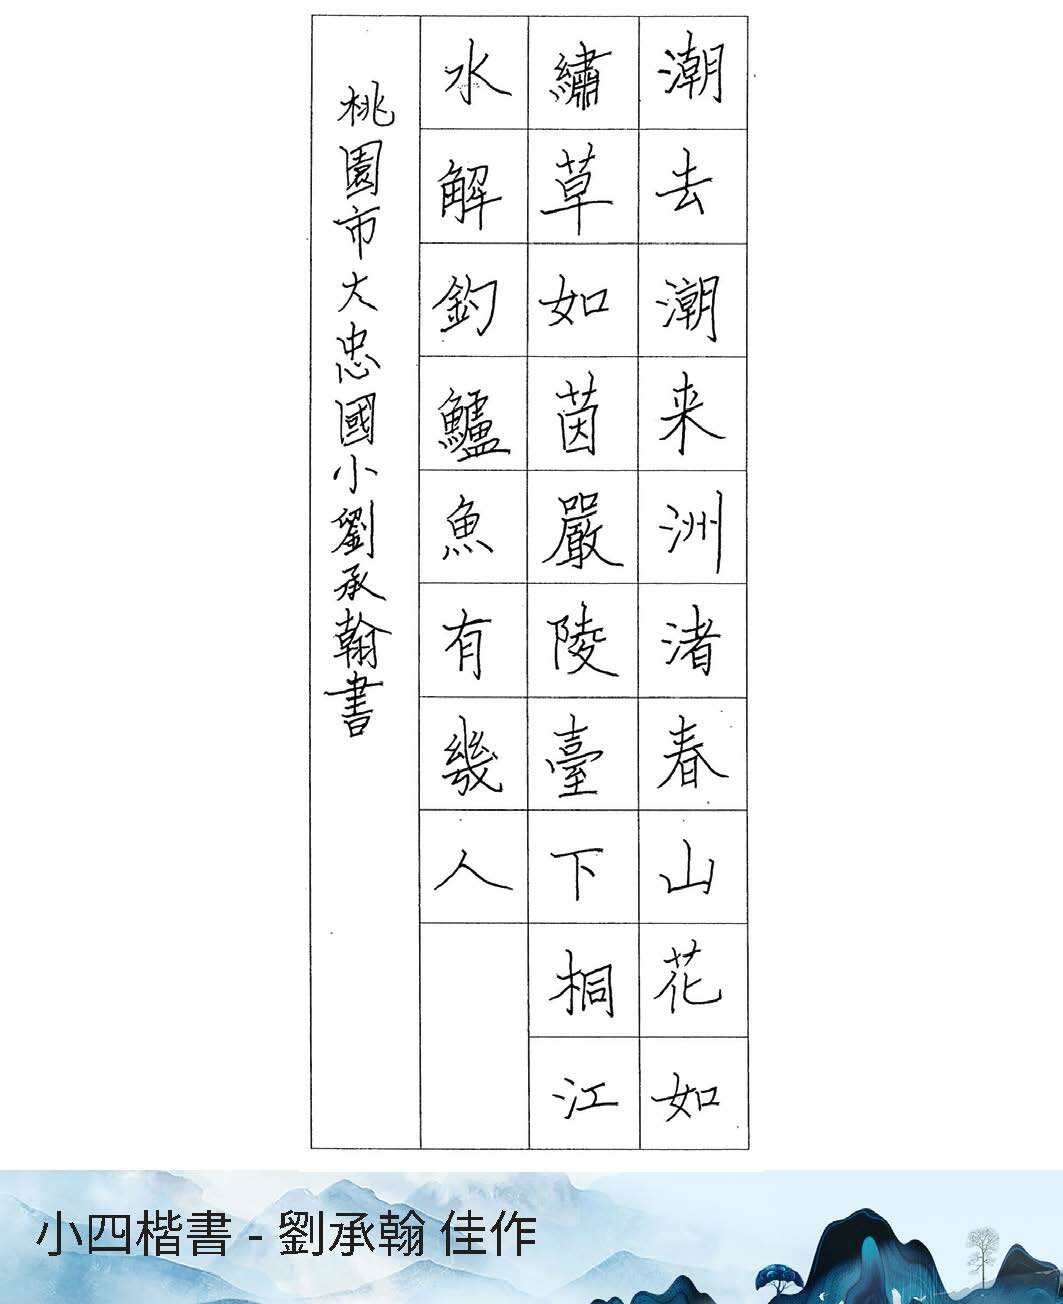 潮去潮来洲渚春山花如
繡草如茵嚴陵臺下桐江
水解鈞鱸魚有幾人
桃園市大忠國小劉承翰書
小四楷書 - 劉承翰 佳作